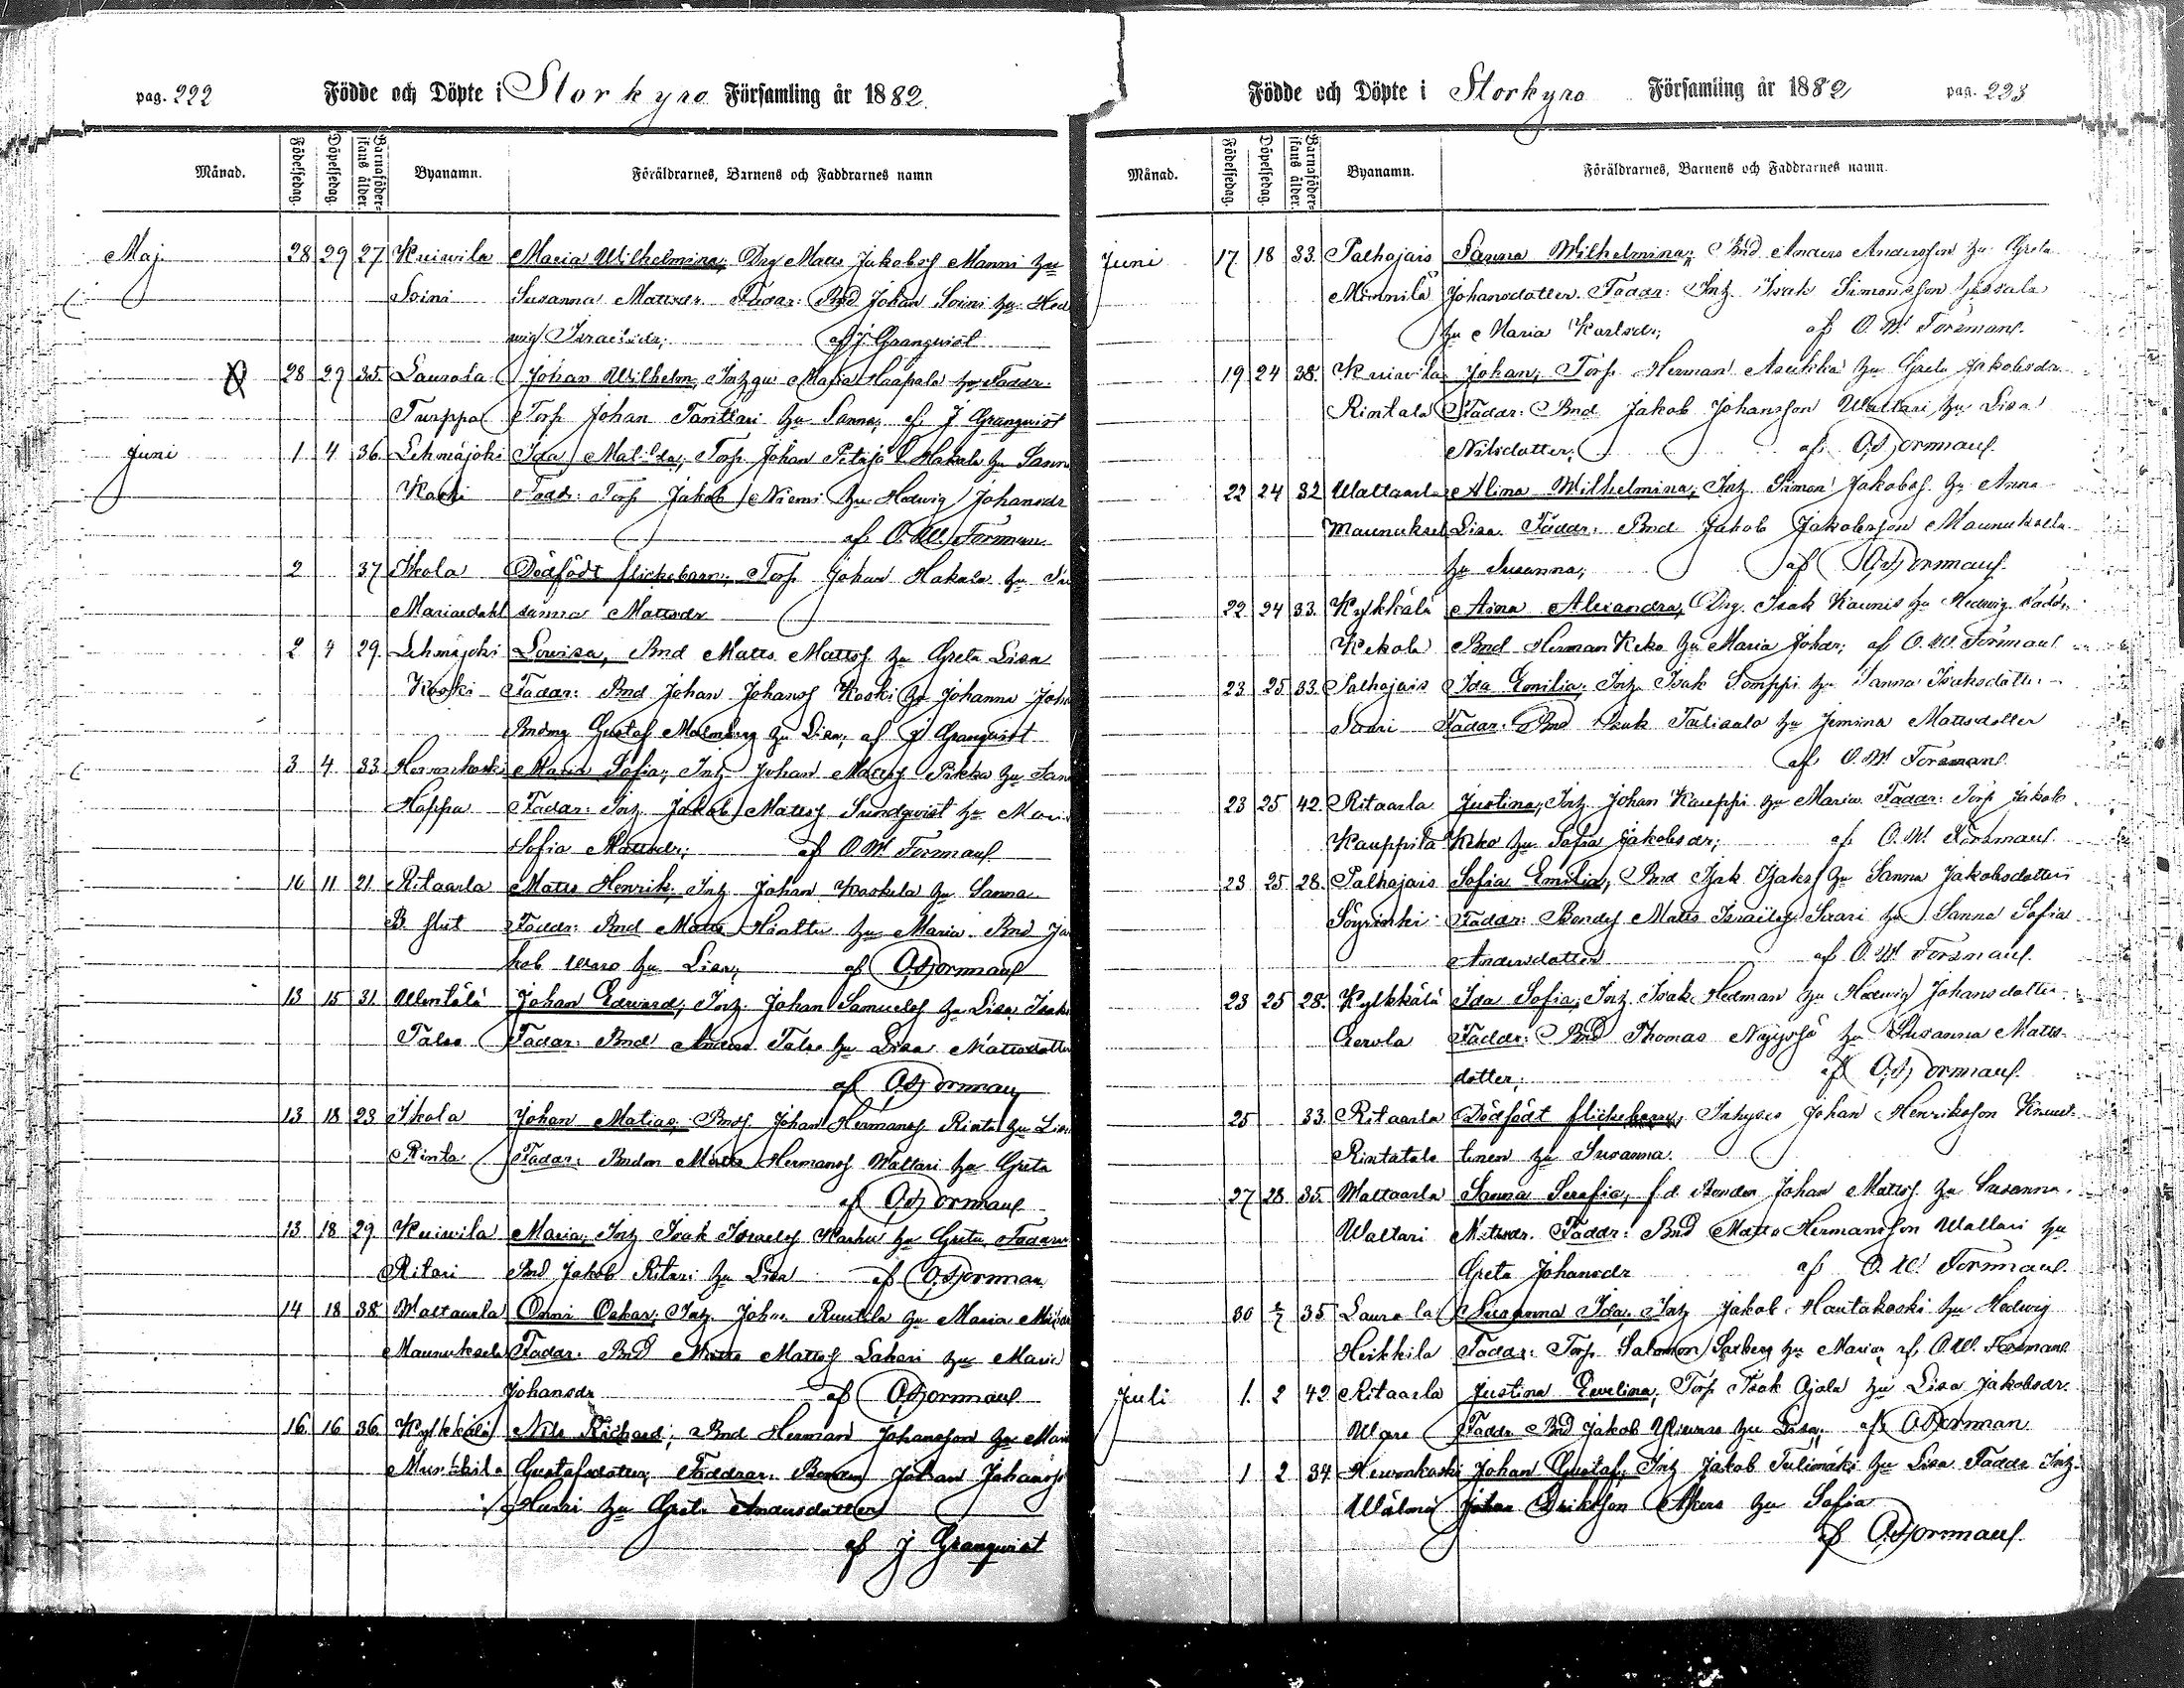 pag. 222 Födde och Döpte i Storkyro Församling år 1882.
Månad. Födelsedag. Döpelsedag. Barnaföderskans ålder. Byanamn. Föräldrarnes, Barnens och Faddrarnes namn
Maj 28 29 27 Kuiwila Maria Wilhelmina; Drg Matts Jakobsf Manni hu
Soini Susanna Mattsdr. Faddr: Bnd Johan Soini hu Hed
wig Israelsdr; af J Granqwist
28 29 35. Laurola Johan Wilhelm, Inhyqu Maria Haapala Faddr.
Turppa Torp Johan Tanttari hu Sanna; af J Granqwist
Juni 1 4 36. Lehmäjoki Ida Matilda; Torp. Johan Hakala hu Sann
Koski Fadd: Torp Jakob Niemi hu Hedwig Johansdr
af O. W. Forsman
2 37 Ikola Dödfödt flickebarn; Torp Johan Hakala hu Su
Mariaedahl sanna Mattsdr
2 4 29. Lehmäjoki Lowisa, Bnd Matts Mattsf hu Greta Lisa
Koski Faddr: Bnd Johan Johansf Koski hu Johanna Joh
Bndmg Gustaf Malmberg hu Lisa; af J Granqwist
3 4 33 Maria Sofia; Inh Johan Mattsf Pikka hu San
Hoppa Faddr: Inh Jakob Mattsf Sundqwist hu Mari
Sofia Mattsdr; af O. W. Forsman
10 11 21 Ritaarla Matts Henrik; Inh Johan Kaskela hu Sanna
B. slut Faddr: Bnd Matts hu Maria. Bnd Ja
kob Waro hu Lisa; af O. Forsman
13 15 31. Ulwilälä Johan Edward; Inh. Johan Samuelsf hu Lisa Isaks
Talso Faddr: Bnd Anders Talso hu Lisa Mattsdotter
af O. Forsman
13 18 23 Ikola Johan Matias; Bnds Johan Hermansf Rinta hu Lisa
Rinta Faddr: Bndsn Matts Hermansf Waltari hu Greta
af O. Forsman
13 18 29 Kuiwila Maria; Inh Isak Israelsf Karhu hu Greta. Faddrar
Ritari Bnd Jakob Ritari hu Lisa af O. Forsman
14 18 38. Waltaarla Onni Oskar; Inh. Johan Ruutila hu Maria
Maunuksela Faddr: Bnd Matts Mattsf Lahari hu Maria
Johansdr af O. Forsman
16 16 36 Kylkkälä Nils Richard; Bnd Herman Johansson hu Mari
Gustafsdotter; Faddrar. Bonden Johan Johansf
Harri hu Greta Amansdotter
af J Granqwist
Födde och Döpte i Storkyro Församling år 1882 pag. 223
Månad. Födelsedag. Döpelsedag. Barnaföderskans ålder. Byanamn. Föräldrarnes, Barnens och Faddrarnes namn.
Juni 17 18 33. Palhojais Sanna Wilhelmina; Bnd Anders Andersson hu Greta
Minnilä Johansdotter. Faddr: Inh Isak Simonsson
hu Maria Karlsdr; af O. W. Forsman.
19 24 38. Kuiwila Johan; Torp. Herman Asukka hu Greta Jakobsdr
Rintala Faddr: Bnd Jakob Johansson Waltari hu Lisa
Nilsdotter; af O. Forsman.
22 24 32 Waltaarla Alina Wilhelmina; Inh Simon Jakobsf. hu Anna
Maunuksel Lisa. Faddr: Bnd Jakob Jakobsson Maunuksela
hu Susanna; af O. Forsman.
22 24 33. Kylkkälä Aina Alexandra; Drg. Isak Kaunis hu Hedwig. Faddr.
Kekola Bnd Herman Keko hu Maria Johdr; af O. W. Forsman
23 25 33. Palhojais Ida Emilia; Inh. Isak Somppi hu Sanna Isaksdotter
Saari Faddr: Bnd Isak Talisalo hu Jemina Mattsdotter
af O. W. Forsman.
23 25 42. Ritaarla Justina; Inh. Johan Kauppi hu Maria Faddr: Torp Jakob
Kauppila Keko hu Sofia Jakobsdr; af O. W. Forsman
23 25 28. Palhojais Sofia Emilia; Bnd Isak Isaksf hu Sanna Jakobsdotter
Söyrinki Faddr: Bondsf Matts Israelsf Saari hu Sanna Sofia
Andersdotter af O. W. Forsman.
23 25 28. Kylkkälä Ida Sofia; Inh. Isak Hedman hu Hedwig Johansdotter.
Gerola Faddr: Bnd Thomas hu Susanna Matts
dotter; af O. Forsman.
25 33. Ritaarla Dödfödt flickebarn; Inhyses Johan Henriksson Knuut
Rintatalo tinen hu Susanna.
27 28 35. Waltaarla Sanna Serafia; f.d. Bonden Johan Mattsf. hu Susanna
Waltari Mattsdr. Faddr: Bnd Matts Hermansson Waltari hu
Greta Johansdr af O. W. Forsman.
30 2/7 35 Laurola Susanna Ida; Inh Jakob Hautakoski hu Hedwig
Heikkila Faddr: Torp. Salomon Saxberg hu Maria; af O. W. Forsman
Juli 1. 2 42 Ritaarla Justina Ewelina; Torp Isak Ojala hu Lisa Jakobsdr.
Faddr Bnd Jakob hu Lisa; af O. Forsman
1 2 34 Johan Gustaf; Inh Jakob Tulimäki hu Lisa Faddr Inh.
Wälmä Johan Eriksson Akers hu Sofia
af O. Forsman.